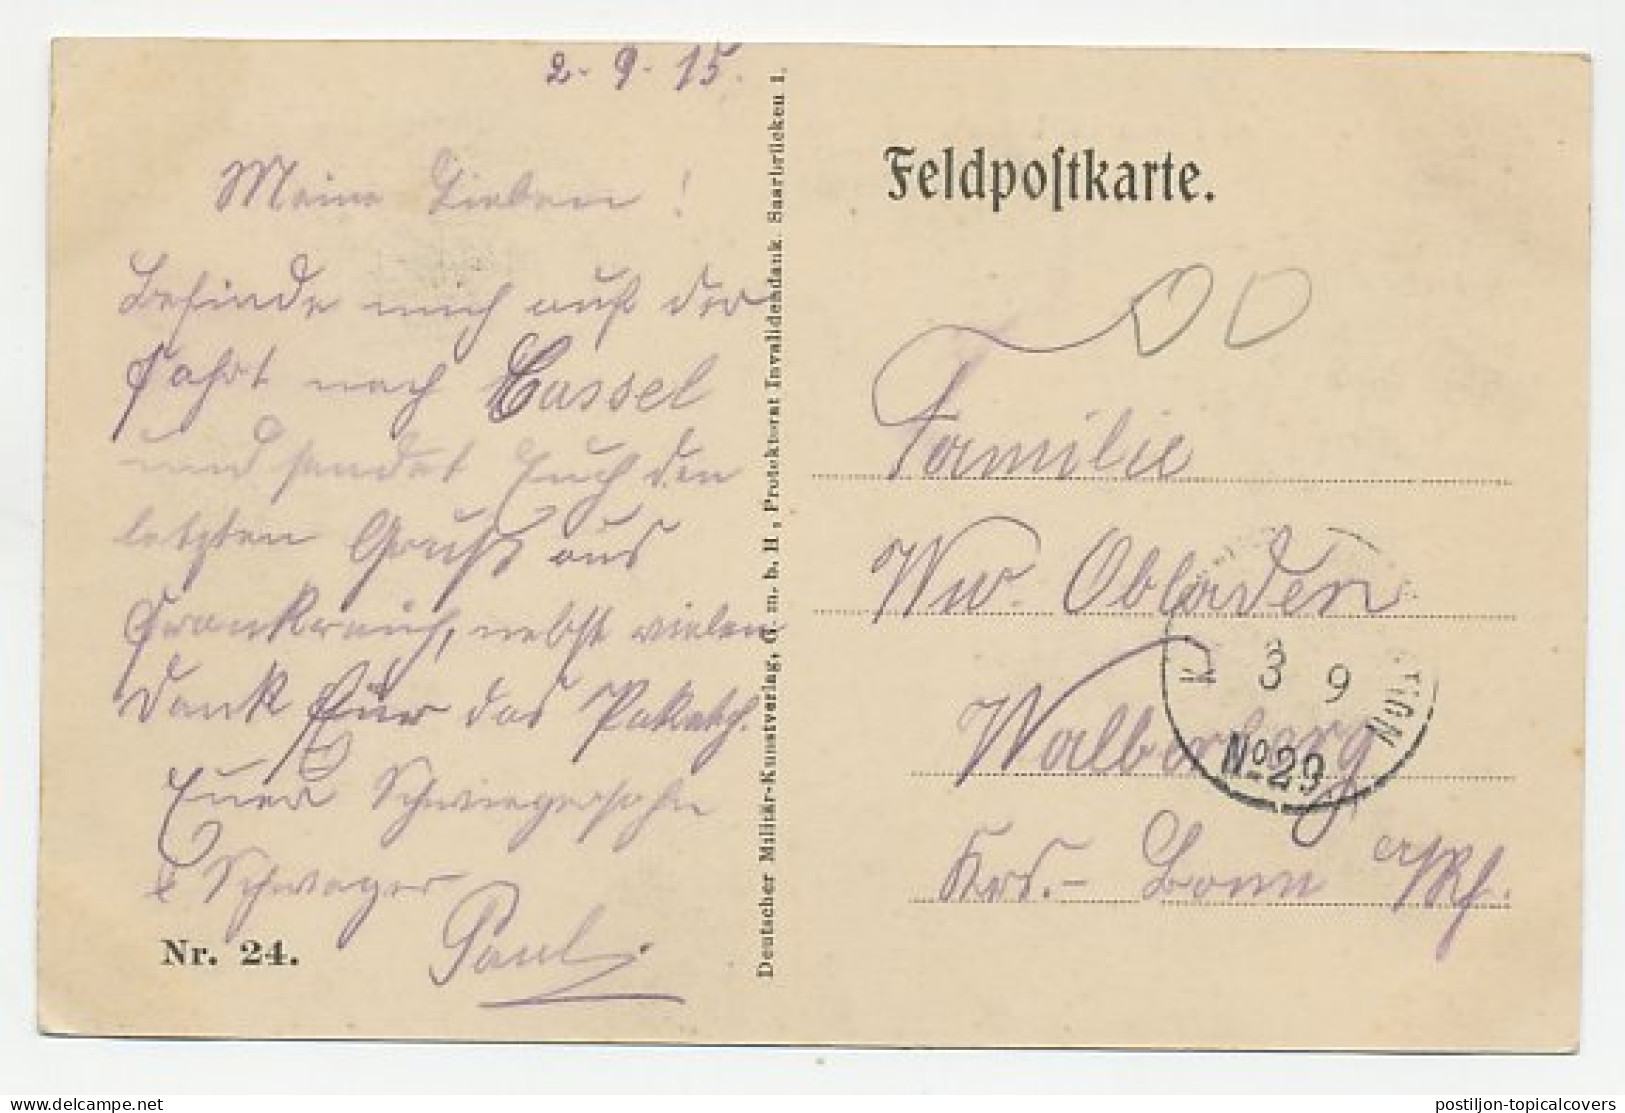 2. 9. 15.
Meine Lieben!
Befinde mich auf der
Fahrt nach Cassel
und sendet Euch den
letzten Gruß aus
Frankreich, nebst vielen
Dank für das Paketch.
Euer Schwiegersohn
& Schwager
Paul.
Nr. 24.
Deutscher Militär-Kunstverlag, G. m. b. H., Protektorat Invalidendank. Saarbrücken 1.
Feldpoſtkarte.
Familie
Ww. Obladen
Walberberg
Krs.- Bonn a/Rh.
3 9
No 29
postiljon-topicalcovers